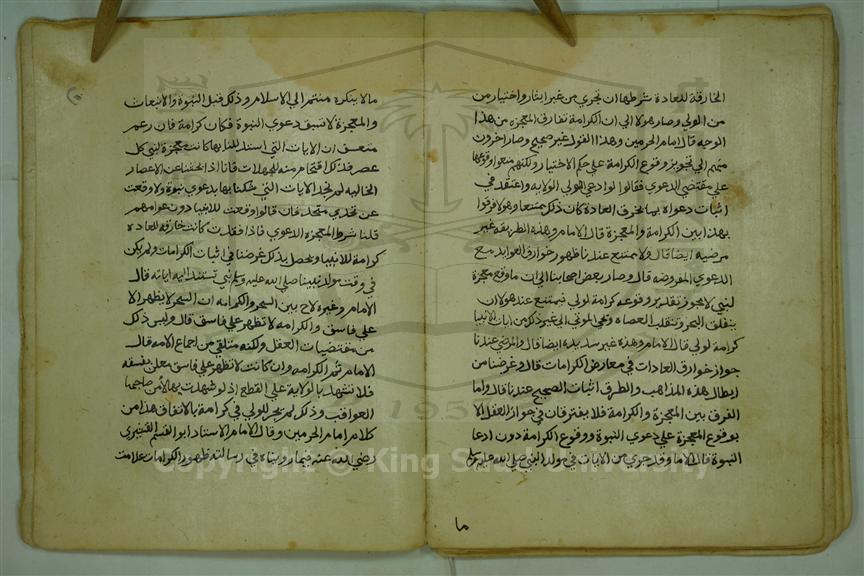 الخارقة للعادة شرطها ان تجري من غير ايثار واختيار من
من الولي وصار هولاالي ان الكرامة تفارق المعجزه من هذا
الوجه قال امام الحرمين وهذا القول غير صحيح وصار اخرون
منهم الي تجويز وقوع الكرامة علي حكم الاختيار ولكنهم منعوا وقوعها
علي مقتضي الدعوي فقالوا لو ادعي الولي الولايه واعتقد في
اثبات دعواه بما يخرق العادة كان ذلك ممتنعا وهولا فرقوا
بهذا بين الكرامة والمعجزة قال الامام وهذه الطريقه غير
مرضيه ايضا قال ولا يمتنع عندنا ظهور خوارق العوايد مع
الدعوي المفروضه قال وصار بعض اصحابنا الي ان ما وقع معجزة
لنبي لا يجوز تقدير وقوعه كرامة لولي فيمتنع عند هولا ان
ينفلق البحر وتنقلب العصاه ويحي الموتي الي غير ذلك من ايات الانبيا
كرامة لولي قال الامام وهذه غير سديده ايضا قال والمرضي عندنا
جواز خوارق العادات في معارض الكرامات قال وغرضنا من
ابطال هذه المذاهب والطرق اثبات الصحيح عندنا قال واما
الفرق بين المعجزة والكرامة فلا يفترقان في جواز العقل الا
بوقوع المعجزة علي دعوي النبوة ووقوع الكرامة دون ادعا
النبوة قال الامام وقد جري من الايات في مولد النبي صلي الله عليه وسلم
ما
ما لا ينكره منتمر الي الاسلام وذلك قبل النبوة والانبعاث
والمعجزة لا تسبق دعوي النبوة فكان كرامة فان زعم
متعسف ان الايات التي استدللنا بها كانت معجزة لنبي كل
عصر فذلك اقتحام منه للجهالات فانا اذا بحثنا عن الاعصار
الخاليه لم نجد الايات التي تمسكنا بها بدعوي نبوة ولا وقعت
عن تحدي متحد فان قالوا وقعت للانبيا دون عوامهم
قلنا شرط المعجزة الدعوي فاذا فقدت كانت خارقة للعاده
كرامة للانبيا ونحصل بذلك غرضنا في اثبات الكرامات ولم يكن
في وقت مولد نبينا صلي الله عليه وسلم نبي تستند اليه اياته قال
الامام وغيره لاح بين السحر والكرامه ان السحر لا يظهر الا
علي فاسق والكرامة لا تظهر علي فاسق قال وليس ذلك
من مقتضيات العقل ولكنه متلقي من اجماع الامه قال
الامام ثم الكرامه وان كانت لا تظهر علي فاسق معلن بفسقه
فلا تشهد بالولاية علي القطع اذ لو شهدت بها لأمن صاحبها
العواقب وذلك لم يجز للولي في كرامة بالاتفاق هذا من
كلام امام الحرمين وقال الامام الاستاد ابو القسم القشيري
رضي الله عنه فيما رويناه في رسالته ظهور الكرامات علامت
Copyright © King Saud University
1957